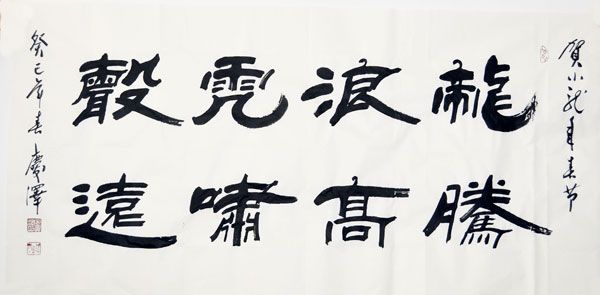 賀小龙年春节
龍騰
浪高
虎嘯
聲遠
癸巳年春 慶澤